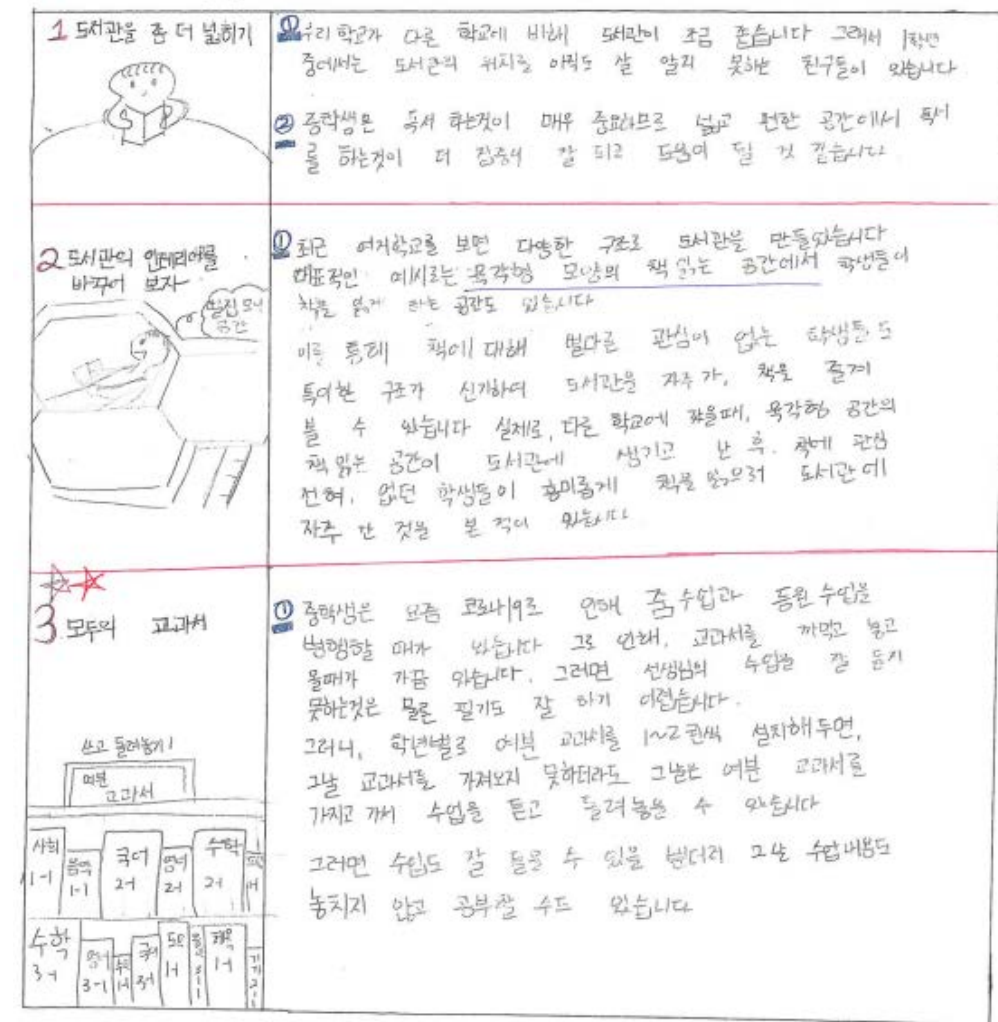 1 도서관을 좀 더 넓히기
① 우리 학교가 다른 학교에 비해 도서관이 조금 좁습니다 그래서 1학년
중에서는 도서관의 위치를 아직도 잘 알지 못하는 친구들이 있습니다
② 중학생은 독서 하는것이 매우 중요하므로 넓고 편한 공간에서 독서
를 하는것이 더 집중이 잘 되고 도움이 될 것 같습니다
2 도서관의 인테리어를
바꾸어 보자
벌집 모양
공간
① 최근 여러학교를 보면 다양한 구조로 도서관을 만들었습니다
대표적인 예시로는 육각형 모양의 책 읽는 공간에서 학생들이
책을 읽게 하는 공간도 있습니다
이를 통해 책에 대해 별다른 관심이 없는 학생들도
특이한 구조가 신기하여 도서관을 자주 가, 책을 즐겨
볼 수 있습니다 실제로, 다른 학교에 갔을때, 육각형 공간의
책 읽는 공간이 도서관에 생기고 난 후. 책에 관심
전혀, 없던 학생들이 흥미롭게 책을 읽으러 도서관에
자주 간 것을 본 적이 있습니다
3 모두의 교과서
쓰고 돌려놓기!
여분
교과서
사회
1-1
음악
1-1
국어
2-1
영어
2-1
수학
2-1
수학
3-1
영어
3-1
국어
3-1
도덕
1-1
체육
1-1
① 중학생은 요즘 코로나19로 인해 줌 수업과 등원 수업을
병행할 때가 있습니다 그로 인해, 교과서를 까먹고 놓고
올때가 가끔 있습니다. 그러면 선생님의 수업을 잘 듣지
못하는것은 물론 필기도 잘 하기 어렵습니다.
그러니, 학년별로 여분 교과서를 1~2권씩 설치해 두면,
그날 교과서를 가져오지 못하더라도 그날은 여분 교과서를
가지고 가서 수업을 듣고 돌려 놓을 수 있습니다
그러면 수업도 잘 들을 수 있을 뿐더러 그날 수업내용도
놓치지 않고 공부할 수도 있습니다